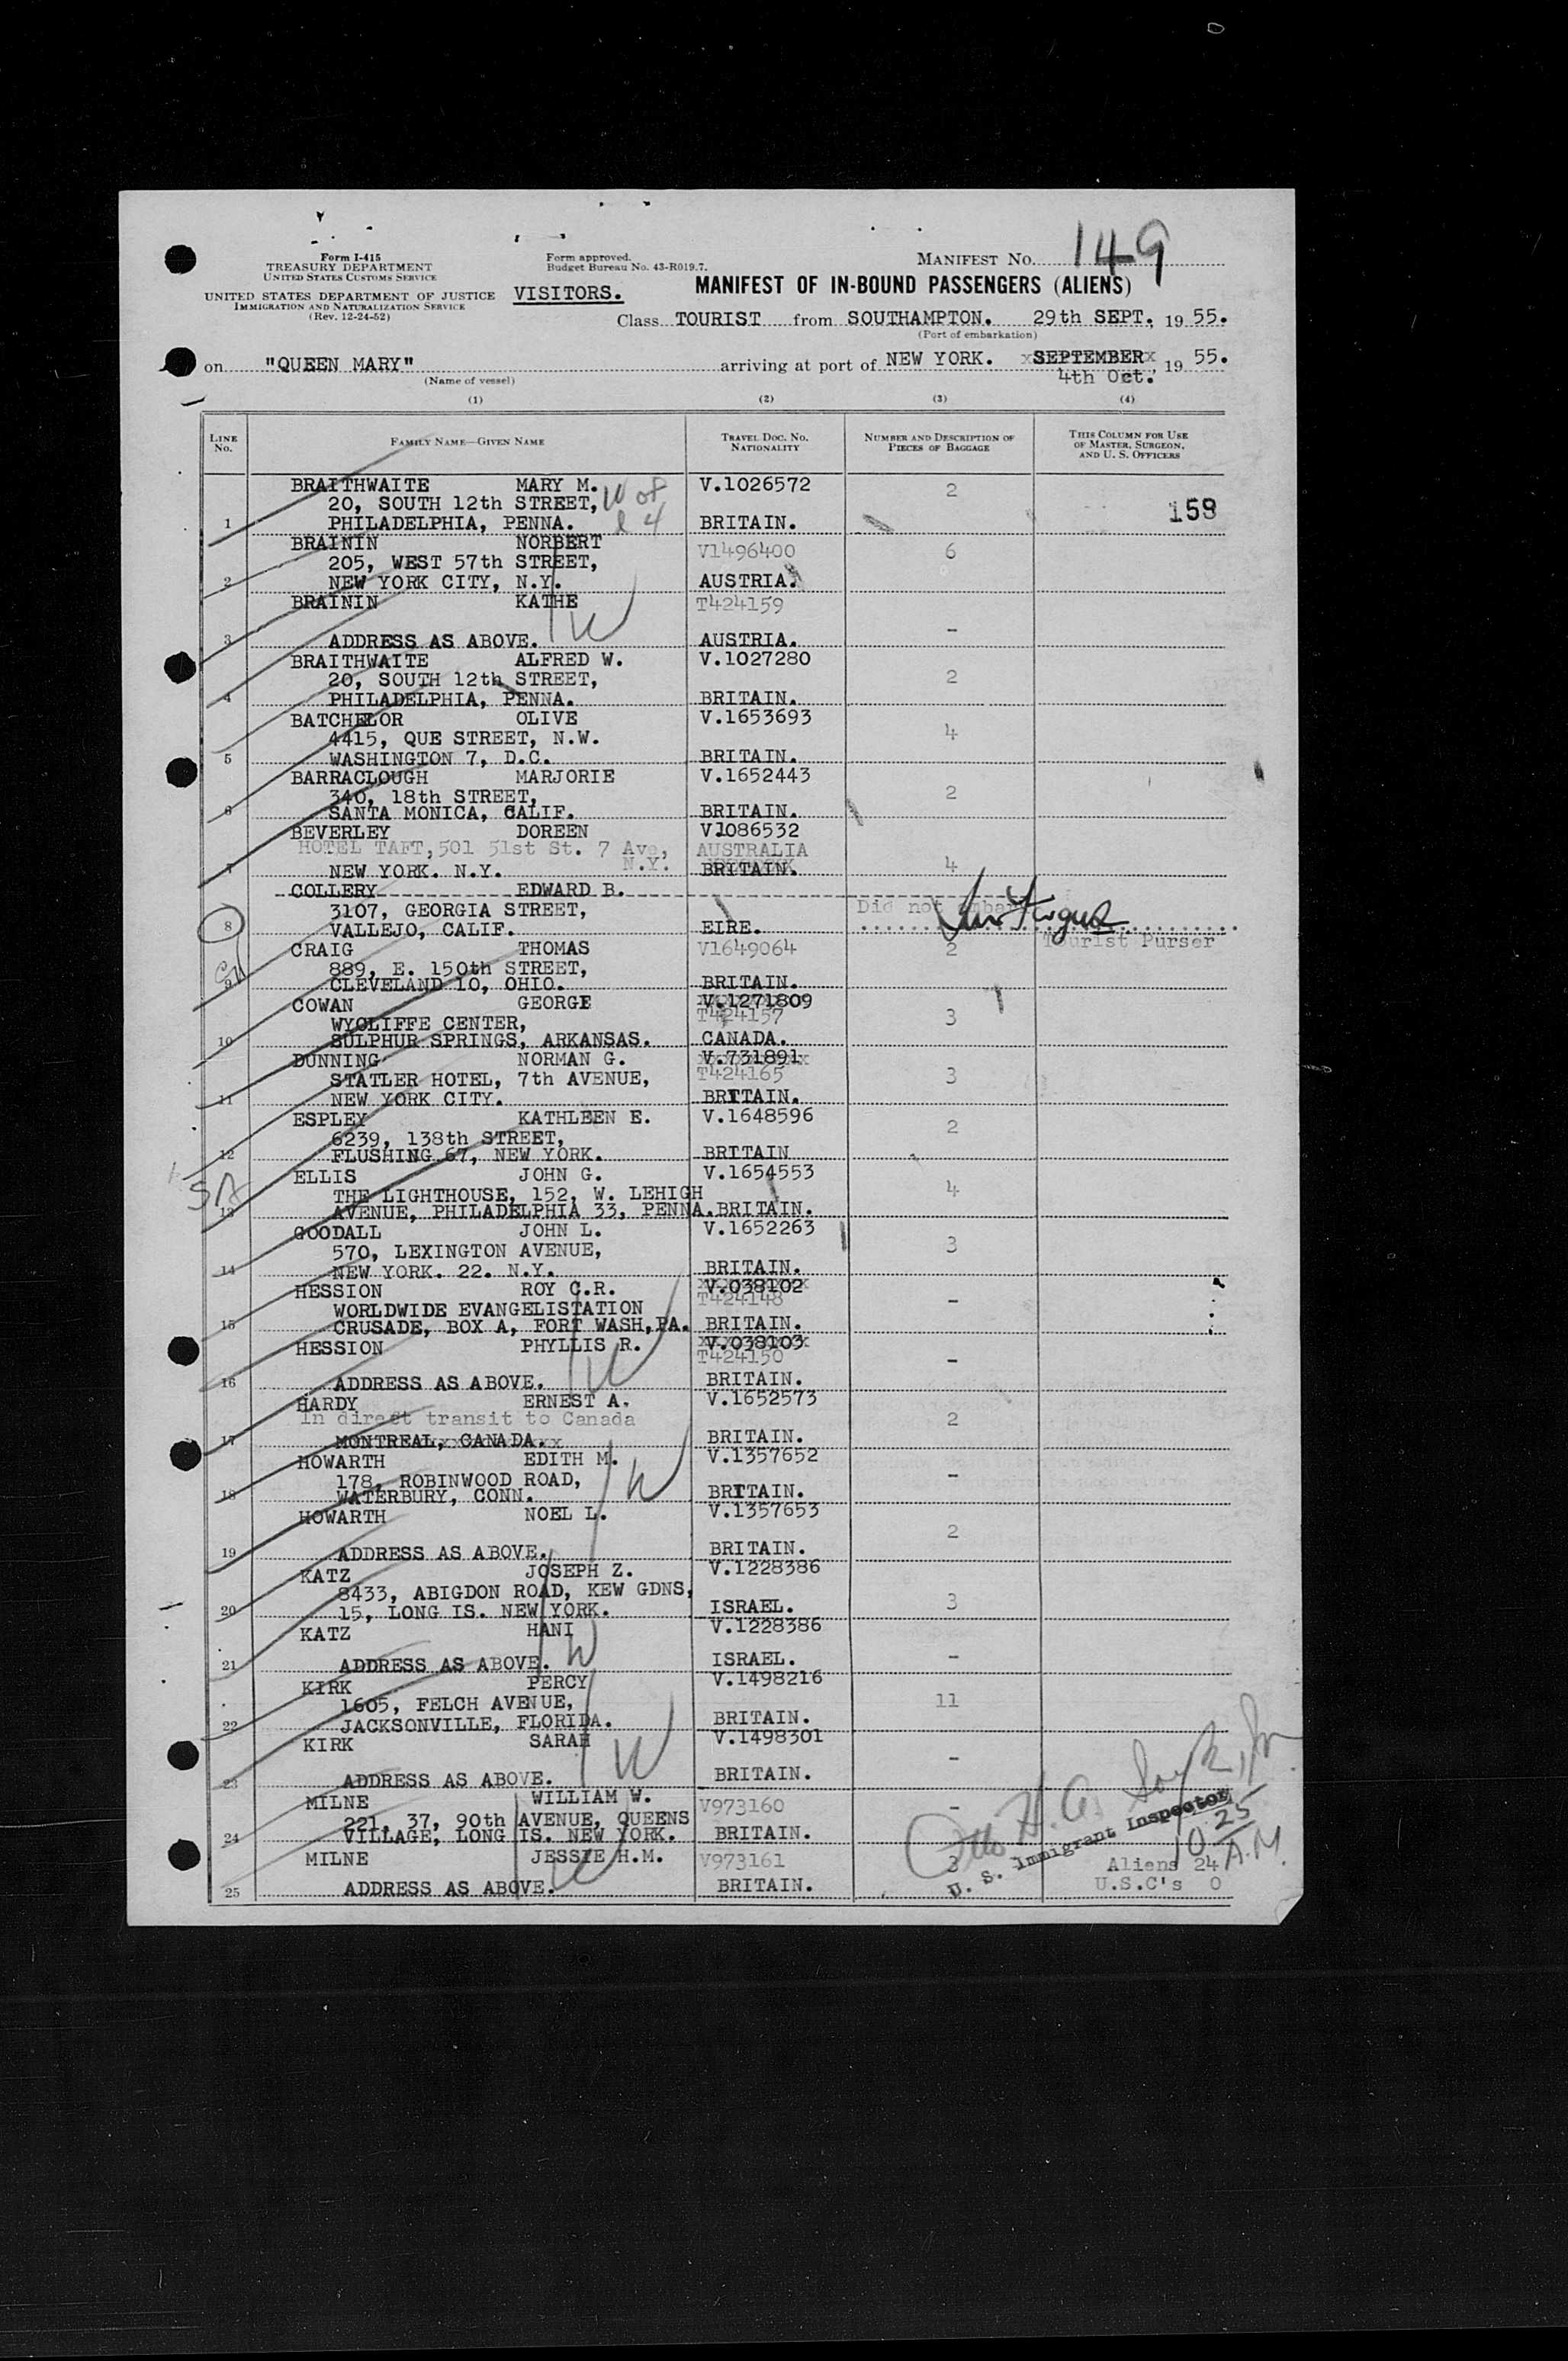 Form I-415
TREASURY DEPARTMENT
UNITED STATES CUSTOMS SERVICE
UNITED STATES DEPARTMENT OF JUSTICE
IMMIGRATION AND NATURALIZATION SERVICE
(Rev. 12-24-52)
Form approved.
Budget Bureau No. 43-R019.7.
MANIFEST No. 149
VISITORS.
MANIFEST OF IN-BOUND PASSENGERS (ALIENS)
Class TOURIST from SOUTHAMPTON. 29th SEPT. 19 55.
(Port of embarkation)
on "QUEEN MARY" arriving at port of NEW YORK. SEPTEMBER 19 55.
(Name of vessel) 4th Oct.
(1) (2) (3) (4)
LINE No. FAMILY NAME—GIVEN NAME TRAVEL DOC. NO. NATIONALITY NUMBER AND DESCRIPTION OF PIECES OF BAGGAGE THIS COLUMN FOR USE OF MASTER, SURGEON, AND U. S. OFFICERS
BRAITHWAITE MARY M. V.1026572 2
20, SOUTH 12th STREET, W of 159
1 PHILADELPHIA, PENNA. l 4 BRITAIN.
BRAININ NORBERT V1496400 6
205, WEST 57th STREET,
2 NEW YORK CITY, N.Y. AUSTRIA.
BRAININ KATHE T424159
3 ADDRESS AS ABOVE. W AUSTRIA. -
BRAITHWAITE ALFRED W. V.1027280
20, SOUTH 12th STREET, 2
4 PHILADELPHIA, PENNA. BRITAIN.
BATCHELOR OLIVE V.1653693
4415, QUE STREET, N.W. 4
5 WASHINGTON 7, D.C. BRITAIN.
BARRACLOUGH MARJORIE V.1652443
340, 18th STREET, 2
6 SANTA MONICA, CALIF. BRITAIN.
BEVERLEY DOREEN V1086532
HOTEL TAFT, 501 51st St. 7 Ave, N.Y. AUSTRALIA
7 NEW YORK. N.Y. BRITAIN. 4
COLLERY EDWARD B.
3107, GEORGIA STREET, Did not embark
8 VALLEJO, CALIF. EIRE.
CRAIG THOMAS V1649064 2 Tourist Purser
889, E. 150th STREET,
9 CLEVELAND 10, OHIO. BRITAIN.
COWAN GEORGE V.1271809
WYCLIFFE CENTER, T424157 3
10 SULPHUR SPRINGS, ARKANSAS. CANADA.
DUNNING NORMAN G. V.731891
STATLER HOTEL, 7th AVENUE, T424165 3
11 NEW YORK CITY. BRITAIN.
ESPLEY KATHLEEN E. V.1648596
6239, 138th STREET, 2
12 FLUSHING 67, NEW YORK. BRITAIN
ELLIS JOHN G. V.1654553
THE LIGHTHOUSE, 152, W. LEHIGH 4
13 AVENUE, PHILADELPHIA 33, PENNA. BRITAIN.
GOODALL JOHN L. V.1652263
570, LEXINGTON AVENUE, 3
14 NEW YORK. 22. N.Y. BRITAIN.
HESSION ROY C.R. V.038102
WORLDWIDE EVANGELISTATION T424148 -
15 CRUSADE, BOX A, FORT WASH, PA. BRITAIN.
HESSION PHYLLIS R. V.038103
T424150 -
16 ADDRESS AS ABOVE. W BRITAIN.
HARDY ERNEST A. V.1652573
In direct transit to Canada 2
17 MONTREAL, CANADA. BRITAIN.
HOWARTH EDITH M. V.1357652
178, ROBINWOOD ROAD, W -
18 WATERBURY, CONN. BRITAIN.
HOWARTH NOEL L. V.1357653
2
19 ADDRESS AS ABOVE. BRITAIN.
KATZ JOSEPH Z. V.1228386
8433, ABIGDON ROAD, KEW GDNS,
20 15, LONG IS. NEW YORK. ISRAEL. 3
KATZ HANI V.1228386
21 ADDRESS AS ABOVE. W ISRAEL. -
KIRK PERCY V.1498216
1605, FELCH AVENUE, 11
22 JACKSONVILLE, FLORIDA. BRITAIN.
KIRK SARAH V.1498301
-
23 ADDRESS AS ABOVE. W BRITAIN.
MILNE WILLIAM W. V973160 -
221, 37, 90th AVENUE, QUEENS
24 VILLAGE, LONG IS. NEW YORK. BRITAIN.
MILNE JESSIE H.M. V973161 3
25 ADDRESS AS ABOVE. W BRITAIN.
U. S. Immigrant Inspector
10 25 A.M.
Aliens 24
U.S.C's 0